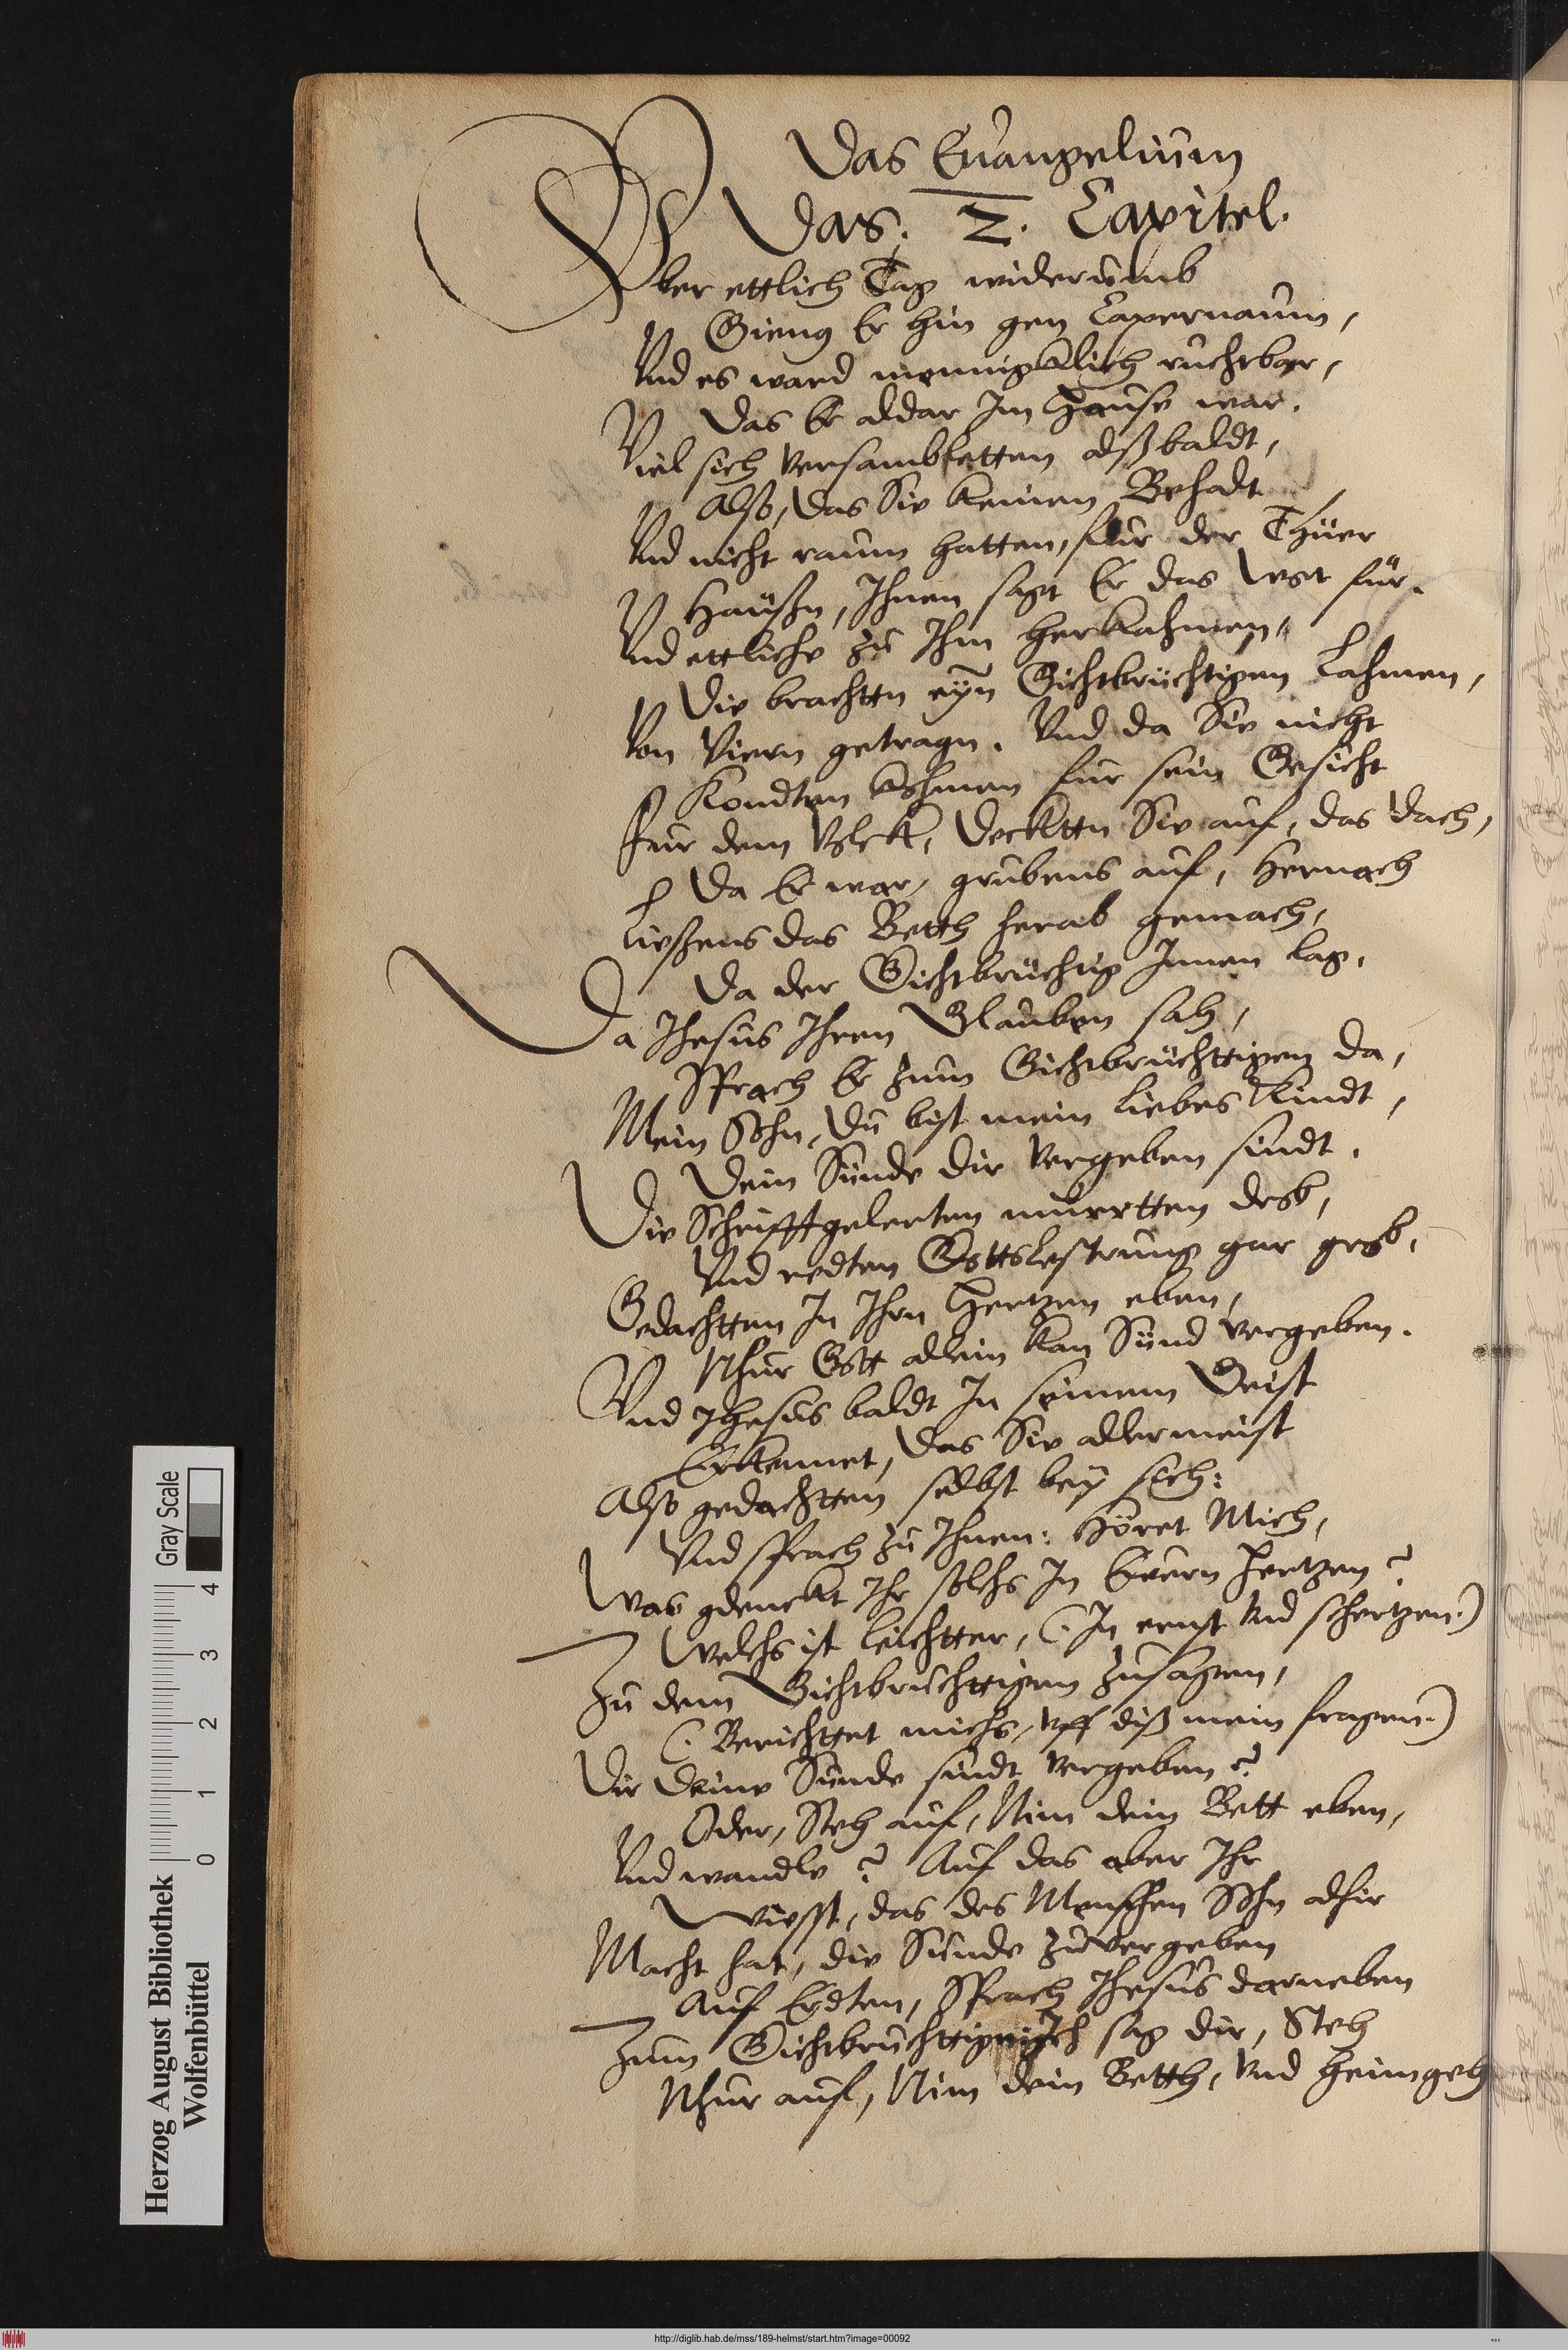 Das Euangelium
Das. 2. Capitel.
Vber ettlich Tag widerumb
Gieng Er hin gen Capernaum,
Vnd es ward menigklich ruchtbar,
Das Er aldar Im Hause war.
Viel sich versambletten alßbaldt,
Also, Das Sie keinen Behalt
Vnd nicht raum hatten, fur der Thüer
Haußn, Ihnen sagt Er das Wort für.
Vnd ettliche zu Ihm herkahmen,
Die brachttn eÿn Gichtbrüchtigen Lahmen,
Von Viern getragn. Vnd da Sie nicht
Kondten kohmen fur sein Gesicht
Fur dem Volck, Decktten Sie auf, das Dach,
Da Er war, grubens auf, Hernach
Liessens das Betth herab gemach,
Da der Gichtbrüchtig Innen lag.
Da Jhesus Ihren Glauben sah,
Sprach Er zum Gichtbrüchttigen da,
Mein Sohn, Du bist mein liebes Kindt,
Dein Sünde dir vergeben sindt.
Die Schrifftgelerten murrtten drob,
Vnd redten Gottslestrung gar grob,
Gedachtten In Ihrn Hertzen eben,
Nhur Gott allein kan Sünd vergeben.
Vnd Jhesus baldt In seinem Geist
Erkennet, Das Sie allermeist
Also gedachtten selbst beÿ sich:
Vnd sprach zu Ihnen: Höret Mich,
Was gdenckt Ihr solchs In Euern Hertzen?
Welchs ist leichtter, (In ernst vnd schertzen.)
Zu dem Gichtbruchttigen zusagen,
(Berichttet michs, vff diß mein fragen.)
Dir Deine Sünde sindt vergeben?
Oder, Steh auf, Nim dein Bett eben,
Vnd wandle? Auf das aber Ihr
Wiesst, das des Menschen Sohn alhir
Macht hat, die Sünde zuvergeben
Auf Erdten, Sprach Jhesus darneben
Zum Gichtbruchttign Ich sag dir, Steh
Nhur auf, Nim dein Betth, vnd heimgeh
Herzog August Bibliothek
Wolfenbüttel
0 1 2 3 4
Gray Scale
http://diglib.hab.de/mss/189-helmst/start.htm?image=00092